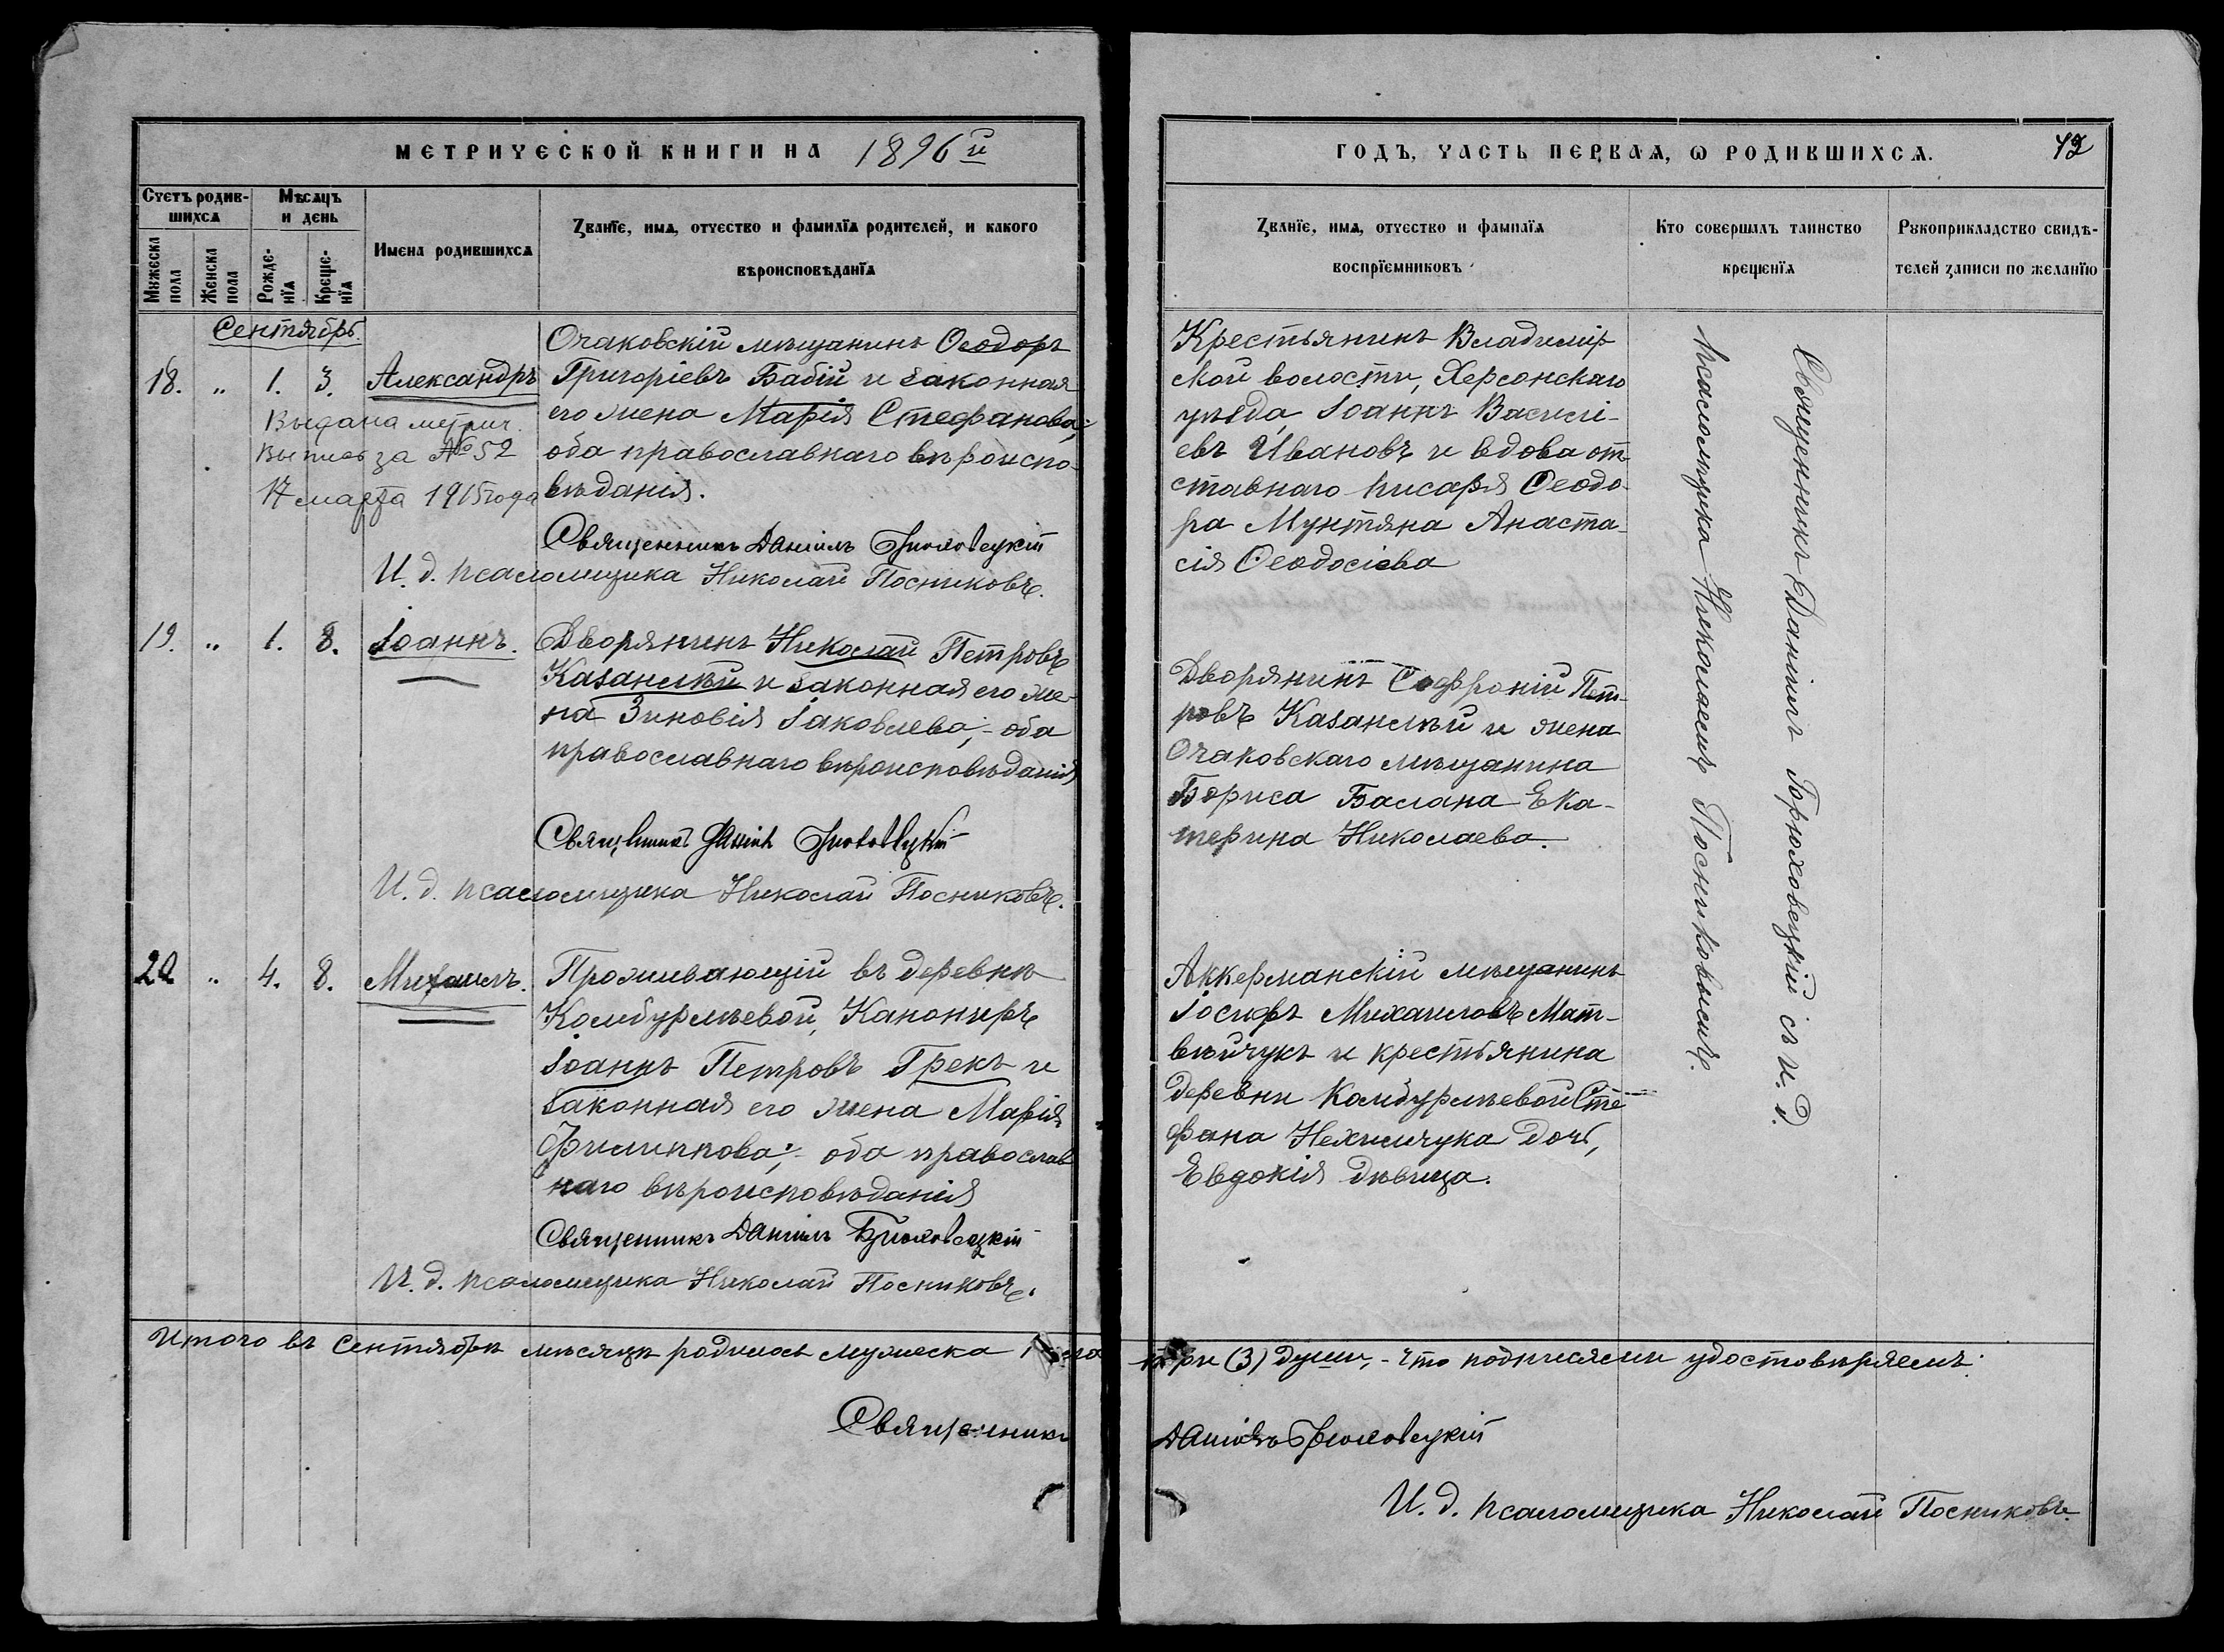 МЕТРИЧЕСКОЙ КНИГИ НА 1896 й
Счетъ родив-
шихся
Мѣсяцъ
и день
Мужеска
пола
Женска
пола
Рожде-
нія
Креще-
нія
Имена родившихся
Званіе, имя, отчество и фамилія родителей, и какого
вѣроисповѣданія
Сентябрь.
18. „ 1. 3. Александръ
Выдана метрич.
выпись за № 52
17 марта 1915 года
Очаковскій мѣщанинъ Ѳеодоръ
Григоріевъ Бабій и законная
его жена Марія Стефанова;
оба православнаго вѣроиспо-
вѣданія.
Священникъ Даніилъ Брюховецкій
И. д. псаломщика Николай Посниковъ.
19. „ 1. 8. Іоаннъ.
Дворянинъ Николай Петровъ
Казанскій и законная его же-
на Зиновія Іаковлева; - оба
православнаго вѣроисповѣданія
Священникъ Даніилъ Брюховецкій
И. д. псаломщика Николай Посниковъ.
20 „ 4. 8. Михаилъ.
Проживающій въ деревнѣ
Комбурлѣевой, Канониръ
Іоаннъ Петровъ Грекъ и
законная его жена Марія
Филиппова; - оба православ
наго вѣроисповѣданія
Священникъ Даніилъ Брюховецкій
И. д. псаломщика Николай Посниковъ.
Итого въ Сентябрѣ мѣсяцѣ родилось мужеска пола
Священникъ
ГОДЪ, ЧАСТЬ ПЕРВАЯ, Ѡ РОДИВШИХСЯ. 42
Званіе, имя, отчество и фамилія
воспріемниковъ
Кто совершалъ таинство
крещенія
Рукоприкладство свидѣ-
телей записи по желанію
Крестьянинъ Владимір-
ской волости, Херсонскаго
уѣзда, Іоаннъ Василі-
евъ Ивановъ и вдова от-
ставнаго писаря Ѳеодо-
ра Мунтяна Анаста-
сія Ѳеодосіева
Дворянинъ Софроній Пет-
ровъ Казанскій и жена
Очаковскаго мѣщанина
Бориса Баслана Ека-
терина Николаева.
Аккерманскій мѣщанинъ
Іосифъ Михаиловъ Мат-
вѣйчукъ и крестьянина
деревни Комбурлѣевой Сте
фана Нехимчука дочь,
Евдокія дѣвица.
Священникъ Даніилъ Брюховецкій съ И. д.
псаломщика Николаемъ Посниковымъ.
три (3) души, - что подписями удостовѣряемъ:
Даніилъ Брюховецкій
И. д. псаломщика Николай Посниковъ.